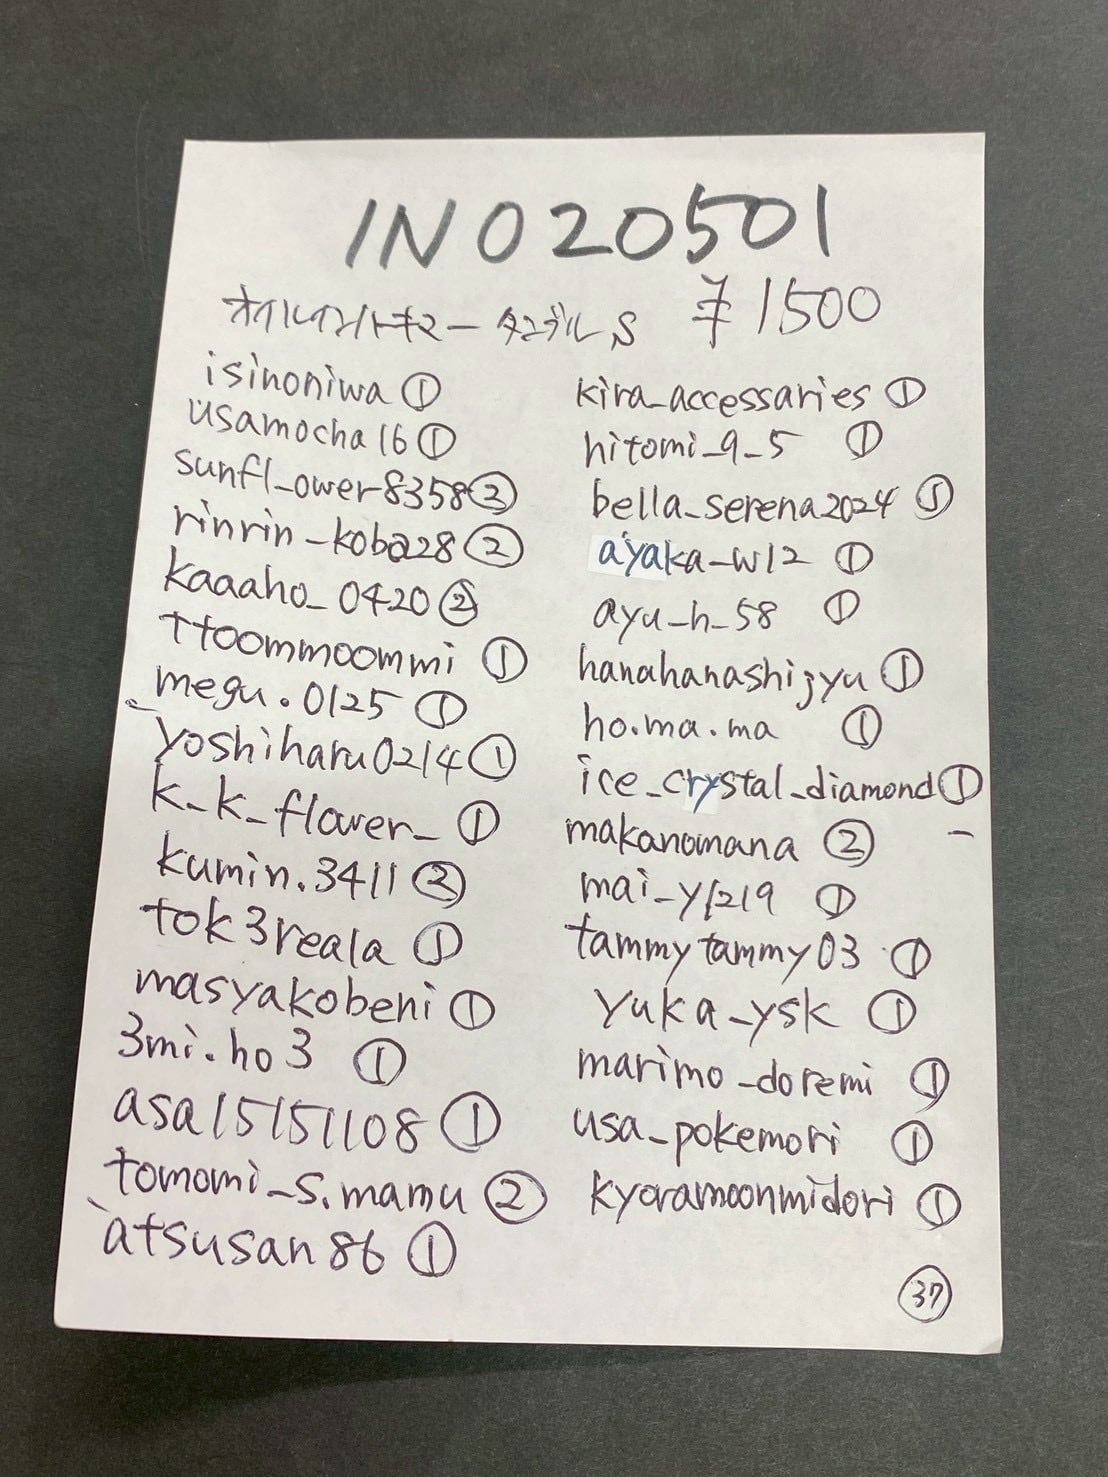 INO20501
オイルインハーキマータンブルS ¥1500
isinoniwa ①
usamocha16 ①
sunfl_ower8358 ②
rinrin_koba28 ②
kaaaho_0420 ②
ttoommoommi ①
megu.0125 ①
yoshiharu0214 ①
k_k_flower_ ①
kumin.3411 ②
tok3reala ①
masyakobeni ①
3mi.ho3 ①
asa15151108 ①
tomomi_s.mamu ②
atsusan86 ①
kira_accessaries ①
hitomi_9_5 ①
bella_serena2024 ①
ayaka_w12 ①
ayu_h_58 ①
hanahanashijyu ①
ho.ma.ma ①
ice_crystal_diamond ①
makanomana ②
mai_y1219 ①
tammytammy03 ①
yuka_ysk ①
marimo_doremi ①
usa_pokemori ①
kyoramoonmidori ①
㊲